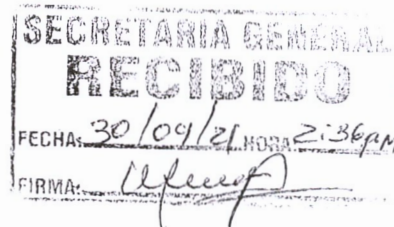 SECRETARIA GENERAL
RECIBIDO
FECHA: 30/09/21 HORA 2:36 pM
FIRMA: